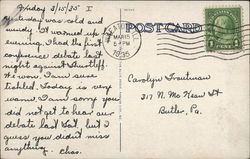 Friday 3/15/35 I
Yesterday was cold and
windy. It warmed up in
evening. I had the first
conference debate last
night against
We won. I am sure
tickled. Today is very
warm. I am sorry you
did not get to hear our
debate last but I
guess you didn't miss
anything.
Chas.
POST CARD
MAR 15
6 PM
1935
Carolyn Troutman
317 N. Mc Kean St
Butler, Pa.